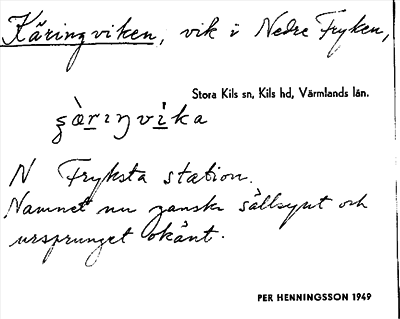 Käringviken, vik i Nedre Fryken,
Stora Kils sn, Kils hd, Värmlands län.
N Fryksta station.
Namnet nu ganska sällsynt och
ursprunget okänt.
PER HENNINGSSON 1949